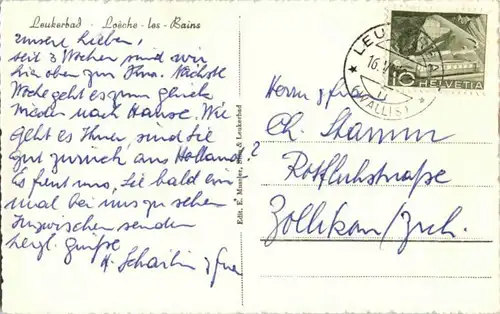 Leukerbad - Loèche-les-Bains
unsere Lieben,
seit 3 Wochen sind wir
hier oben zur Nächste
Woche geht es zum glück
wieder nach Hause. Wie
geht es Ihnen, sind Sie
gut zurück aus Holland?
Es freut uns, Sie bald ein
mal bei uns zu sehen
Inzwischen senden
herzl. Grüsse
Edit. E. & Leukerbad
LEUK
16.
(WALLIS)
10 HELVETIA
Herrn & Frau
Ch. Stamm
Rotfluhstraße
Zollikon/Zürch.